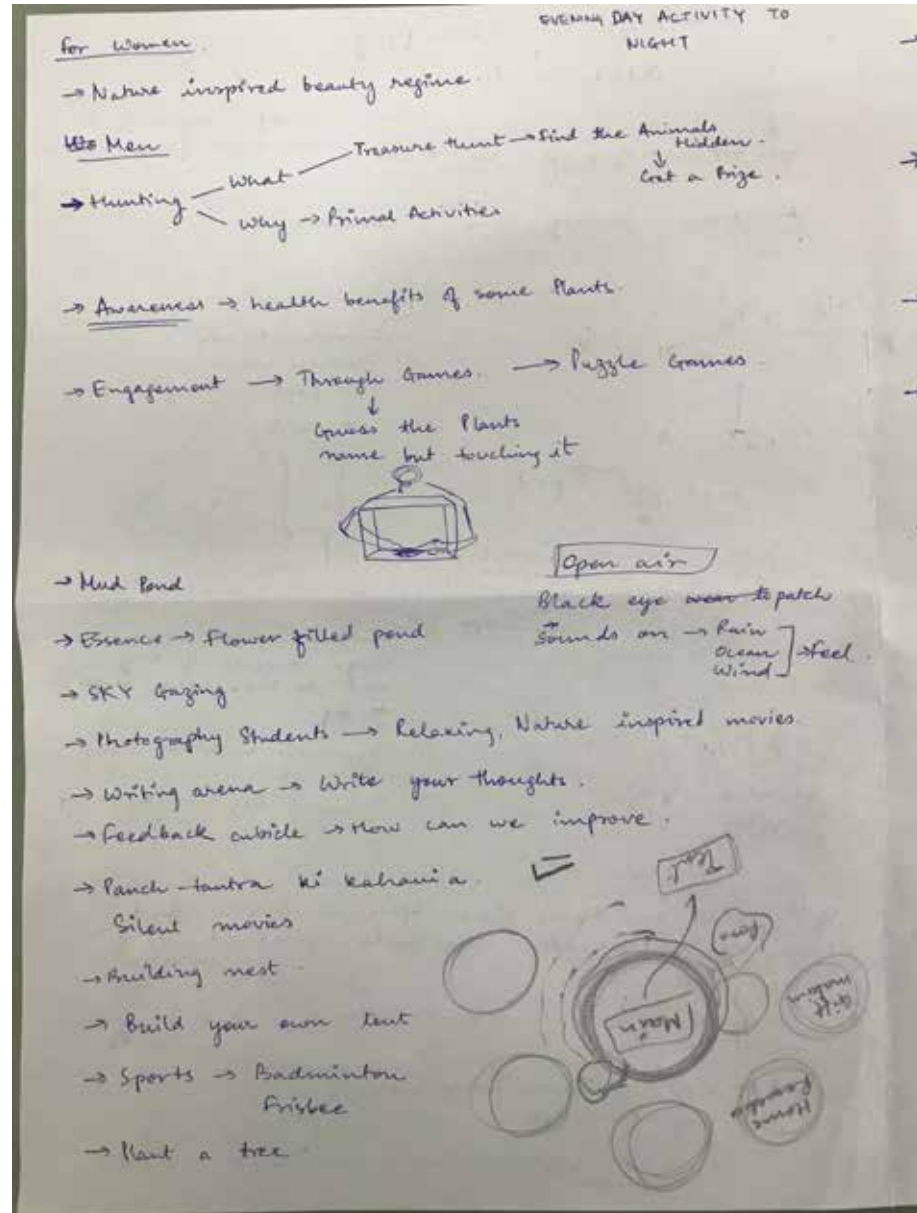 EVENING DAY ACTIVITY TO
NIGHT
for Women.
→ Nature inspired beauty regime.
Men
→ Hunting
What
Treasure Hunt → Find the Animals
Hidden.
↓
Get a Prize.
Why → Primal Activities
→ Awareness → health benefits of some Plants.
→ Engagement → Through Games. → Puzzle Games.
↓
Guess the Plants
name but touching it
→ Mud Pond
Open air
Black eye patch
→ Essence → Flower filled pond
Sounds on → Rain
Ocean
Wind
→ Feel.
→ SKY Gazing
→ Photography Students → Relaxing, Nature inspired movies.
→ Writing arena → Write your thoughts.
→ Feedback cubicle → How can we improve.
→ Panch-tantra ki kahania.
Silent movies
Tent
Pond
→ Building nest.
Main
→ Build your own tent
→ Sports → Badminton
Frisbee
Home
→ Plant a tree.